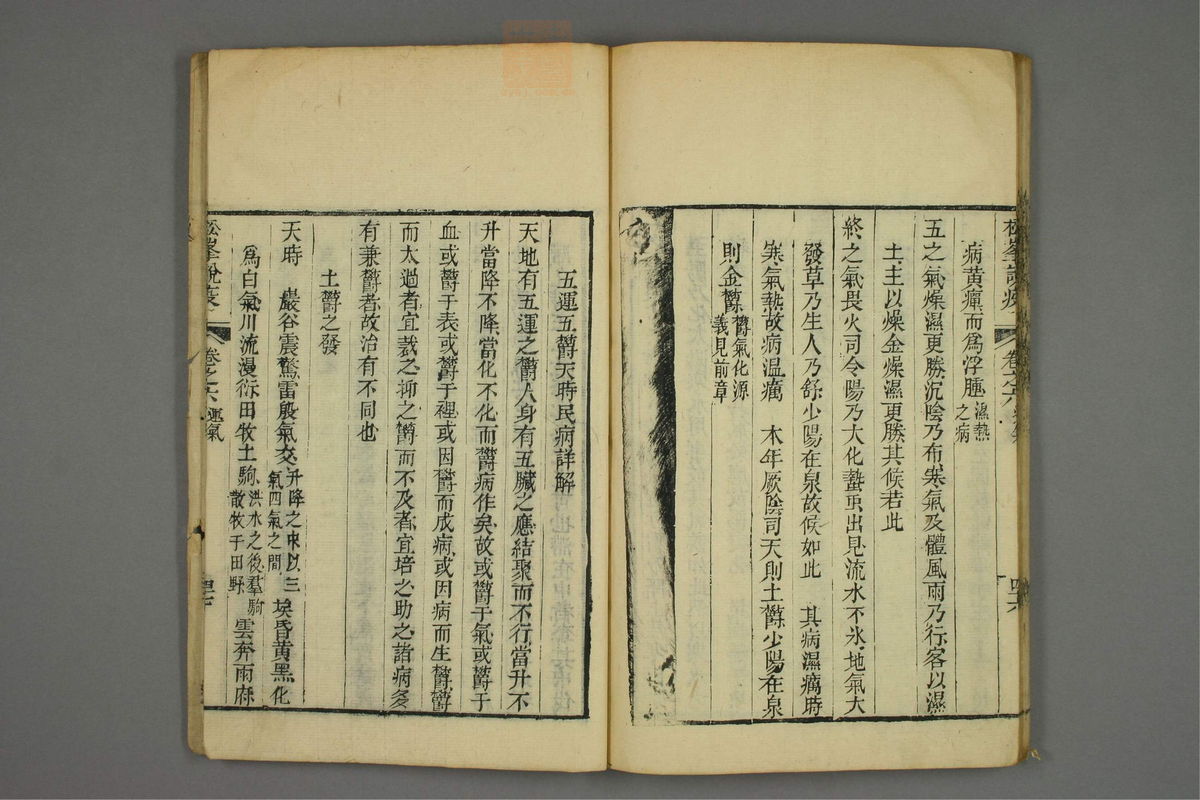 病黃癉而爲浮腫濕熱之病
五之氣燥濕更勝沉陰乃布寒氣及體風雨乃行客以濕
土主以燥金燥濕更勝其候若此
終之氣畏火司令陽乃大化蟄虫出見流水不氷地氣大
發草乃生人乃舒少陽在泉故候如此　其病濕癘時
寒氣熱故病溫癘　木年厥陰司天則土欝少陽在泉
則金欝欝氣化源義見前章
五運五欝天時民病詳解
天地有五運之欝人身有五臟之應結聚而不行當升不
升當降不降當化不化而欝病作矣故或欝于氣或欝于
血或欝于表或欝于裡或因欝而成病或因病而生欝欝
而太過者宜裁之抑之欝而不及者宜培之助之諸病多
有兼欝者故治有不同也
土欝之發
天時　巖谷震驚雷殷氣交升降之中以三氣四氣之間埃昏黃黑化
爲白氣川流漫衍田牧土駒洪水之後羣駒散牧于田野雲奔雨府
松峯說疫
卷之六
運氣